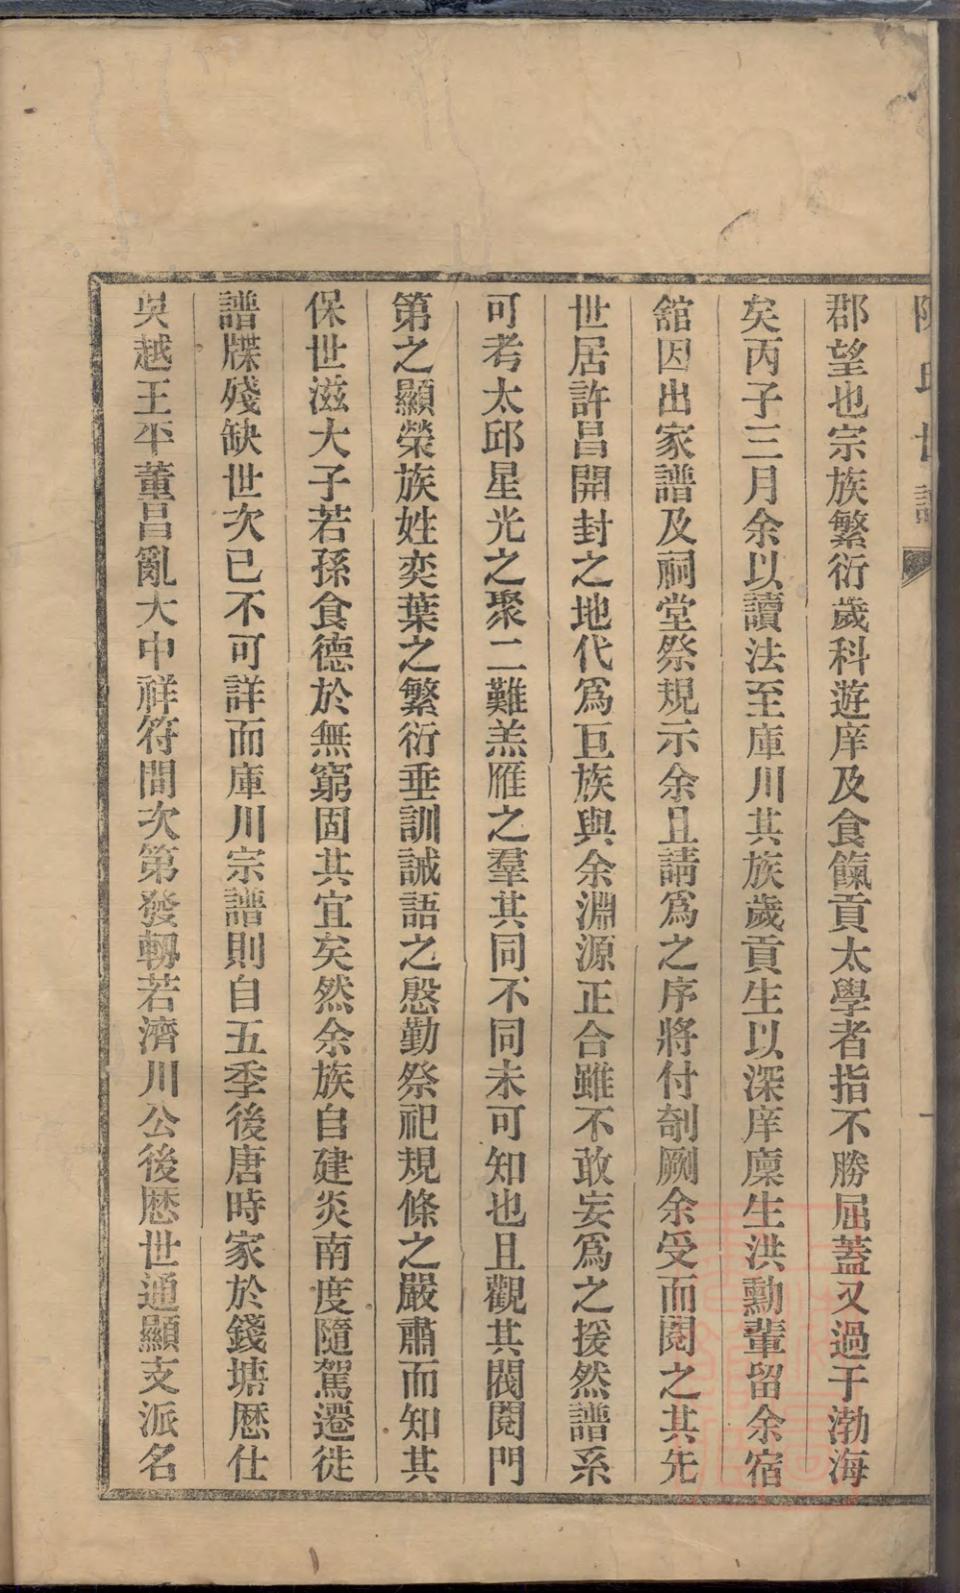 陳氏世譜
郡望也宗族繁衍歲科遊庠及食餼貢太學者指不勝屈蓋又過于渤海
矣丙子三月余以讀法至庫川其族歲貢生以深庠廩生洪勳輩留余宿
舘因出家譜及祠堂祭規示余且請爲之序將付剞劂余受而閱之其先
世居許昌開封之地代爲巨族與余淵源正合雖不敢妄爲之援然譜系
可考太邱星光之聚二難羔雁之羣其同不同未可知也且觀其閥閱門
第之顯榮族姓奕葉之繁衍垂訓誡語之慇勤祭祀規條之嚴肅而知其
保世滋大子若孫食德於無窮固其宜矣然余族自建炎南度隨駕遷徙
譜牒殘缺世次已不可詳而庫川宗譜則自五季後唐時家於錢塘歴仕
吳越王平董昌亂大中祥符間次第發軔若濟川公後歴世通顯支派名